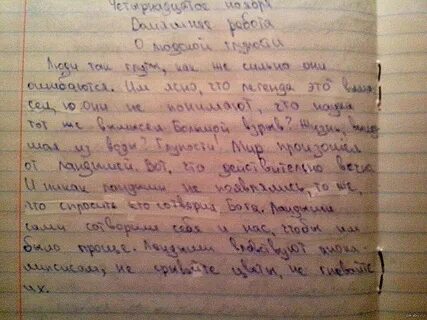 Четырнадцатое ноября
Домашняя работа
О людской глупости
Люди так глупы, как же сильно они
ошибаются. Им ясно, что легенда это
они не понимают, что наука
тот же Большой взрыв? Жизнь,
шая из воды? Глупости! Мир произошел
от ландышей. Вот, что действительно вечно.
И никак ландыши не появлялись, то же,
что спросить кто сотворил Бога. Ландыши
сами сотворили себя и нас, чтобы им
было проще. Ландыши
не срывайте цветы, не гневайте
их.